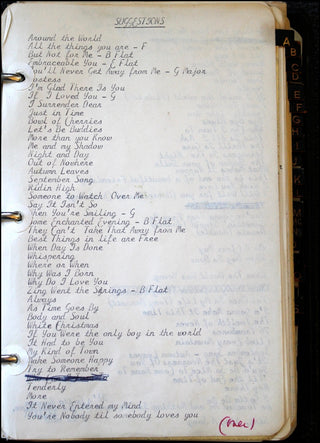 SUGGESTIONS
Around the World
All the things you are - F
But Not for Me - B Flat
Embraceable You - E Flat
You'll Never Get Away from Me - G Major
Hostess
I'm Glad There Is You
If I Loved You - G
I Surrender Dear
Just in Time
Bowl of Cherries
Let's Be Buddies
More than you Know
Me and my Shadow
Night and Day
Out of Nowhere
Autumn Leaves
September Song
Ridin High
Someone to Watch Over Me
Say It Isn't So
When You're Smiling - G
Some Enchanted Evening - B Flat
They Can't Take That Away from Me
Best Things in Life are Free
When Day Is Done
Whispering
Where or When
Why Was I Born
Why Do I Love You
Zing Went the Strings - B Flat
Always
As Time Goes By
Body and Soul
White Christmas
If You Were the only boy in the world
It Had to be You
My Kind of Town
Make Someone Happy
Try to Remember
Tenderly
More
It Never Entered my Mind
You're Nobody til somebody loves you
(over)
A
B
C
D
E
F
G
H
I
J
K
L
M
N